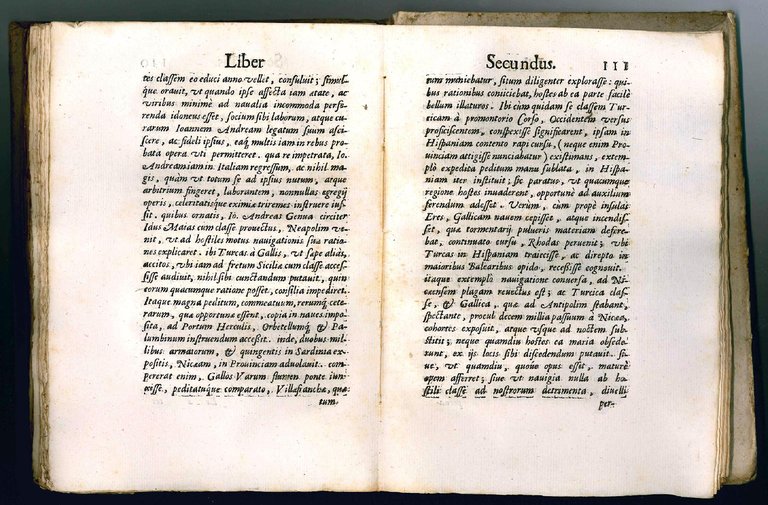 Liber
tes classem eo educi anno vellet, consuluit; simul-
que orauit, vt quando ipse affecta iam ætate, ac
viribus minimè ad naualia incommoda perfe-
renda idoneus esset, socium sibi laborum, atque cu-
rarum Ioannem Andream legatum suum asci-
scere, ac fideli ipsius, eaq́; multis iam in rebus pro-
bata opera vti permitteret. qua re impetrata, Io.
Andream iam in Italiam regressum, ac nihil ma-
gis, quàm vt totum se ad ipsius nutum, atque
arbitrium fingeret, laborantem, nonnullas egregij
operis, celeritatisque eximiæ triremes instruere ius-
sit. quibus ornatis, Io. Andreas Genua circiter
Idus Maias cum classe prouectus, Neapolim ve-
nit, vt ad hostiles motus nauigationis suæ ratio-
nes explicaret. ibi Turcas à Gallis, vt sæpe aliàs,
accitos, vbi iam ad fretum Siciliæ cum classe acces-
sisse audiuit, nihil sibi cunctandum putauit, quin
eorum quacumque ratione posset, consilia impediret.
Itaque magna peditum, commeatuum, rerumq́; cete-
rarum, quæ opportunæ essent, copia in naues impo-
sita, ad Portum Herculis, Orbetellumq́; & Pa-
lumbinum instruendum accessit. inde, duobus mil-
libus armatorum, & quingentis in Sardinia ex-
positis, Nicæam, in Prouinciam aduolauit. com-
pererat enim, Gallos Varum flumen ponte iun-
xisse, peditatuque comparato, Villæfranchæ, quæ
tum
Secundus. 111
tum muniebatur, situm diligenter explorasse: qui-
bus rationibus coniiciebat, hostes ab ea parte facilè
bellum illaturos. Ibi cùm quidam se classem Tur-
cicam à promontorio Corso, Occidentem versus
proficiscentem, conspexisse significarent, ipsam in
Hispaniam contento rapi cursu, (neque enim Pro-
uinciam attigisse nunciabatur) existimans, extem-
plo expedita peditum manu sublata, in Hispa-
niam iter instituit; sic paratus, vt quacumque
regione hostes inuaderent, opportunè ad auxilium
ferendum adesset. Verùm, cùm propè insulas
Eres, Gallicam nauem cepisset, atque incendis-
set, quæ tormentarij pulueris materiam defere-
bat, continuato cursu, Rhodas peruenit; vbi
Turcas in Hispaniam traiecisse, ac direpto in
maioribus Balearibus opido, recessisse cognouit.
itaque extemplo nauigatione conuersa, ad Ni-
cæensem plagam reuectus est; ac Turcica clas-
se, & Gallica, quæ ad Antipolim stabant,
spectante, procul decem millia passuum à Nicæa,
cohortes exposuit, atque vsque ad noctem sub-
stitit; neque quamdiu hostes ea maria obsede-
runt, ex ijs locis sibi discedendum putauit. si-
ue, vt quamdiu, quoue opus esset, maturè
opem afferret; siue vt nauigia nulla ab ho-
stili classe ad nostrorum detrimenta, diuelli
per-